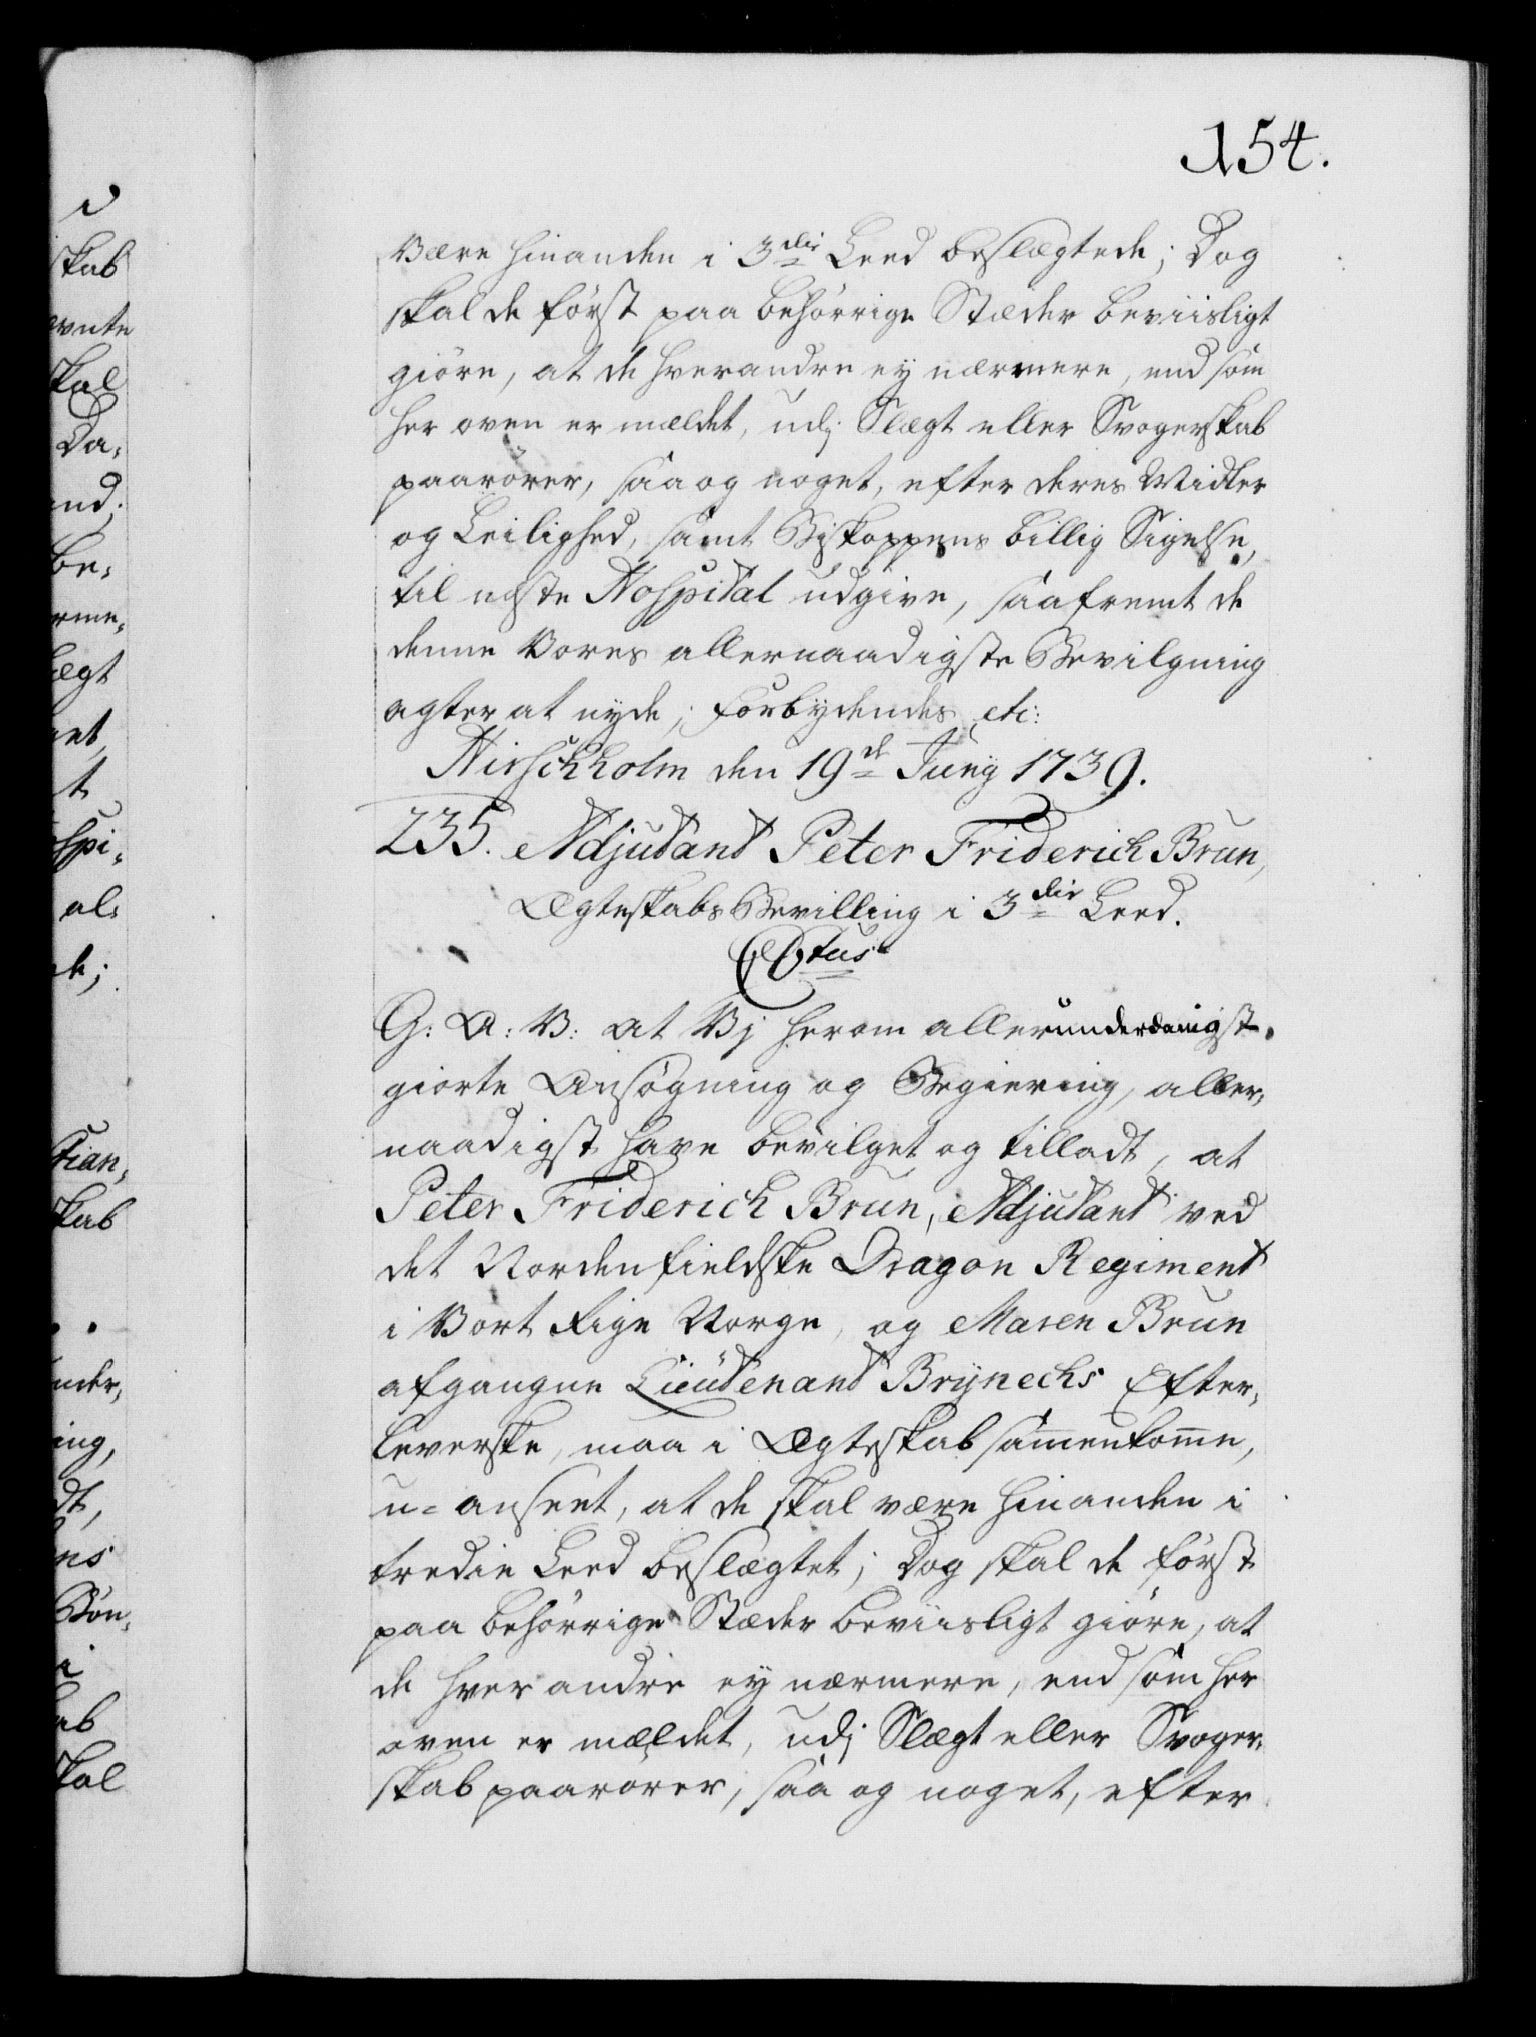 154.
være hinanden i 3die Leed beslægtede; Dog
skal de först paa behörrige Stæder beviisligt
giöre, at de hverandre ey nærmere, end som
her oven er mældet, udj Slægt eller Svogerskab
paarörer, saa og noget, efter deres Midler
og Leilighed, samt Biskoppens billig Sigelse,
til neste Hospital udgive, saafremt de
denne Vores allernaadigste Bevilgning
agter at nyde; forbydendes etc:
Hirschholm den 19de Junij 1739.
235. Adjutant Peter Friderich Brun,
Ægteskabs Bevilling i 3die Leed.
C6tus
G: A: V: at Vj herom allerunderdanigst
giorte Ansögning og Begiering, aller,
naadigst have bevilget og tilladt, at
Peter Friderich Brun, Adjutant ved
det Nordenfieldske Dragon Regiment
i Vort Rige Norge, og Maren Brun
afgangne Lieutenant Brynechs Efter,
leverske, maa i Ægteskab sammenkomme,
u=anseet, at de skal være hinanden i
tredie Leed beslægtet; Dog skal de först
paa behörrige Stæder beviisligt giöre, at
de hverandre ey nærmere, end som her
oven er mældet, udj Slægt eller Svoger,
skab paarörer, saa og noget, efter
skab
skal
Da,
be,
al,
skab
ing,
Bön,
skal